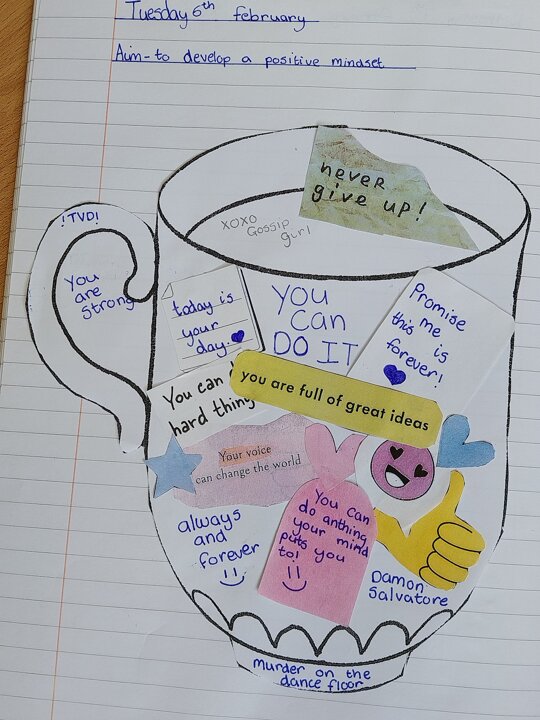 Tuesday 6th february
Aim- to develop a positive mindset
never
give up!
!TVD!
xoxo
Gossip
girl
You
are
strong
today is
your
day.
You
can
DO IT
Promise
me
this is
forever!
You can
hard thing
you are full of great ideas
Your voice
can change the world
always
and
forever
You can
do anthing
your mind
puts you
to!
Damon
Salvatore
murder on the
dance floor